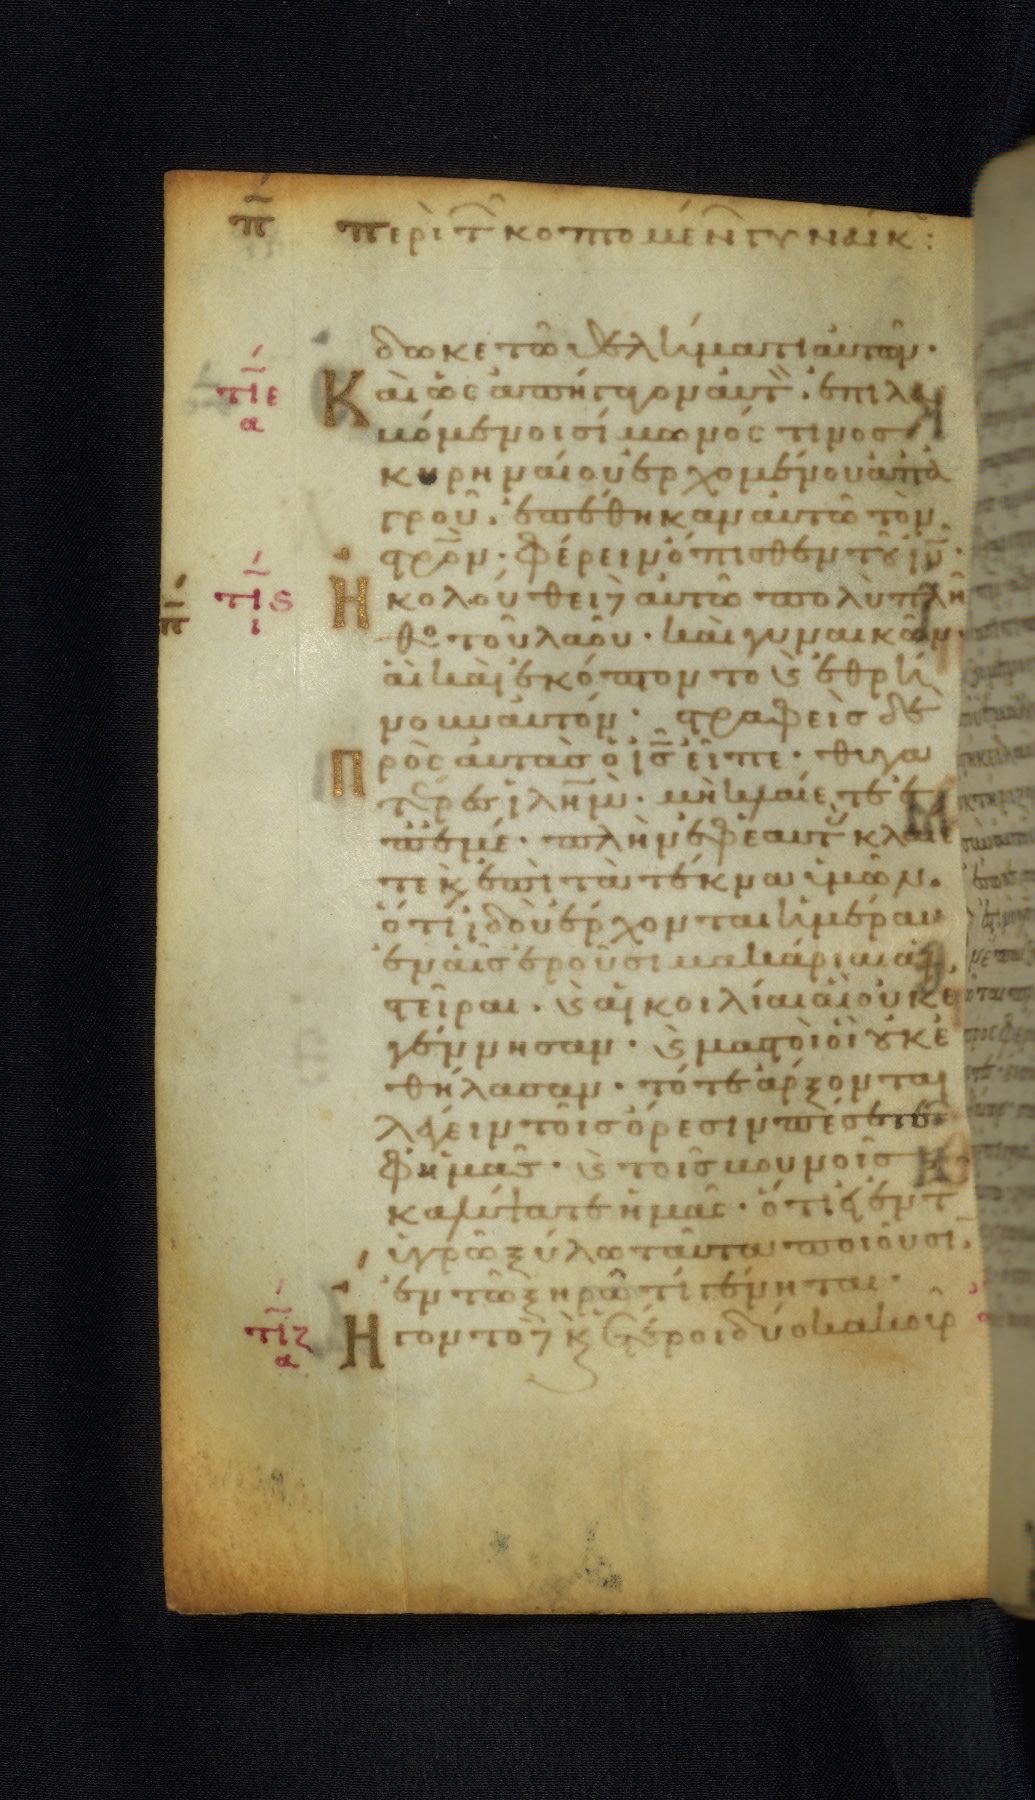 π περὶ τ κοπτομέν γυναικ:
δωκε τῶ θελήματι αὐτῶν·
τιε α Καὶ ὡς ἀπήγαγον αὐτ· ἐπιλα
μόμενοι σίμωνός τινος
κυρηναίου ἐρχομένου ἀπὸ ἀ
γροῦ· ἐπέθηκαν αὐτῶ τὸν
στρον· φέρειν ὄπισθεν τοῦ ιυ·
π τις ι Ηκολούθει δὲ αὐτῶ πολὺ πλῆ
θος τοῦ λαοῦ· καὶ γυναικῶν·
αἳ καὶ ἐκόπτοντο κ ἐθρή
νουν αὐτόν· στραφεὶς δὲ
Πρὸς αὐτὰς ὁ ις εἶπε· θυγα
τέρες ιλημ· μὴ κλαίετε ἐ
π ἐμέ· πλὴν ἐφ ἑαυτ κλαίε
τε κ ἐπὶ τὰ τέκνα ὑμῶν·
ὅτι ἰδοὺ ἔρχονται ἡμέραι
ἐν αἷς ἐροῦσι μακάριαι αἱ
στεῖραι· κ αἱ κοιλίαι αἳ οὐκ ἐ
γέννησαν· κ μαστοὶ οἳ οὐκ ἐ
θήλασαν· τότε ἄρξονται
λέγειν τοῖς ὄρεσιν πέσετε
ἐφ ἡμᾶς· κ τοῖς βουνοῖς
καλύψατε ἡμᾶς· ὅτι εἰ ἐν τ
ὑγρῶ ξύλω ταῦτα ποιοῦσι·
ἐν τῶ ξηρῶ τί γένηται·
τιζ α Ηγοντο δὲ κ ἕτεροι δύο κακοῦρ